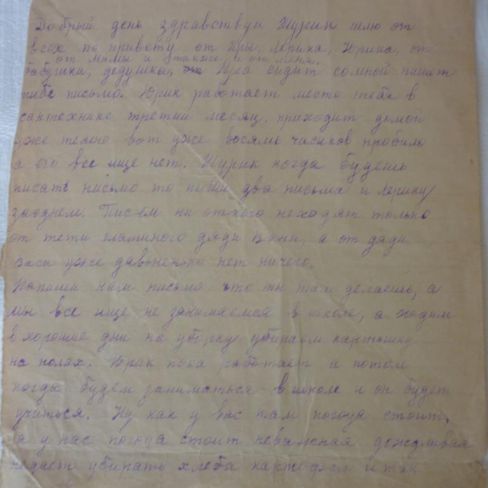 Добрый день здравствуй Шурик шлю от
всех по привету от Иры, Лерика, Юрика, от
от мамы и также и от меня.
бабушки, дедушки, Ира сидит сомной пишет
тибе письмо. Юрик работает место тебя в
сантехнике третий месяц, приходит домой
уже темно вот уже восемь часиков пробило
а его все ище нет. Шурик когда будешь
писать письмо то пиши два письма и Лерику
заоднем. Писем ни откого неходят только
от тети Галиного дяди Вани, а от дяди
Васи уже давненько нет ничего.
Напиши нам письмо что ты там делаешь, а
мы все ище не занимаемся в школе, а ходим
в хорошие дни на уборку убираем картошку
на полях. Юрик пока работает а потом
когда будем заниматься в школе и он будет
учиться. Ну как у вас там погода стоит,
а у нас погода стоит неважная дождливая
недает убирать хлеба каждый день и так